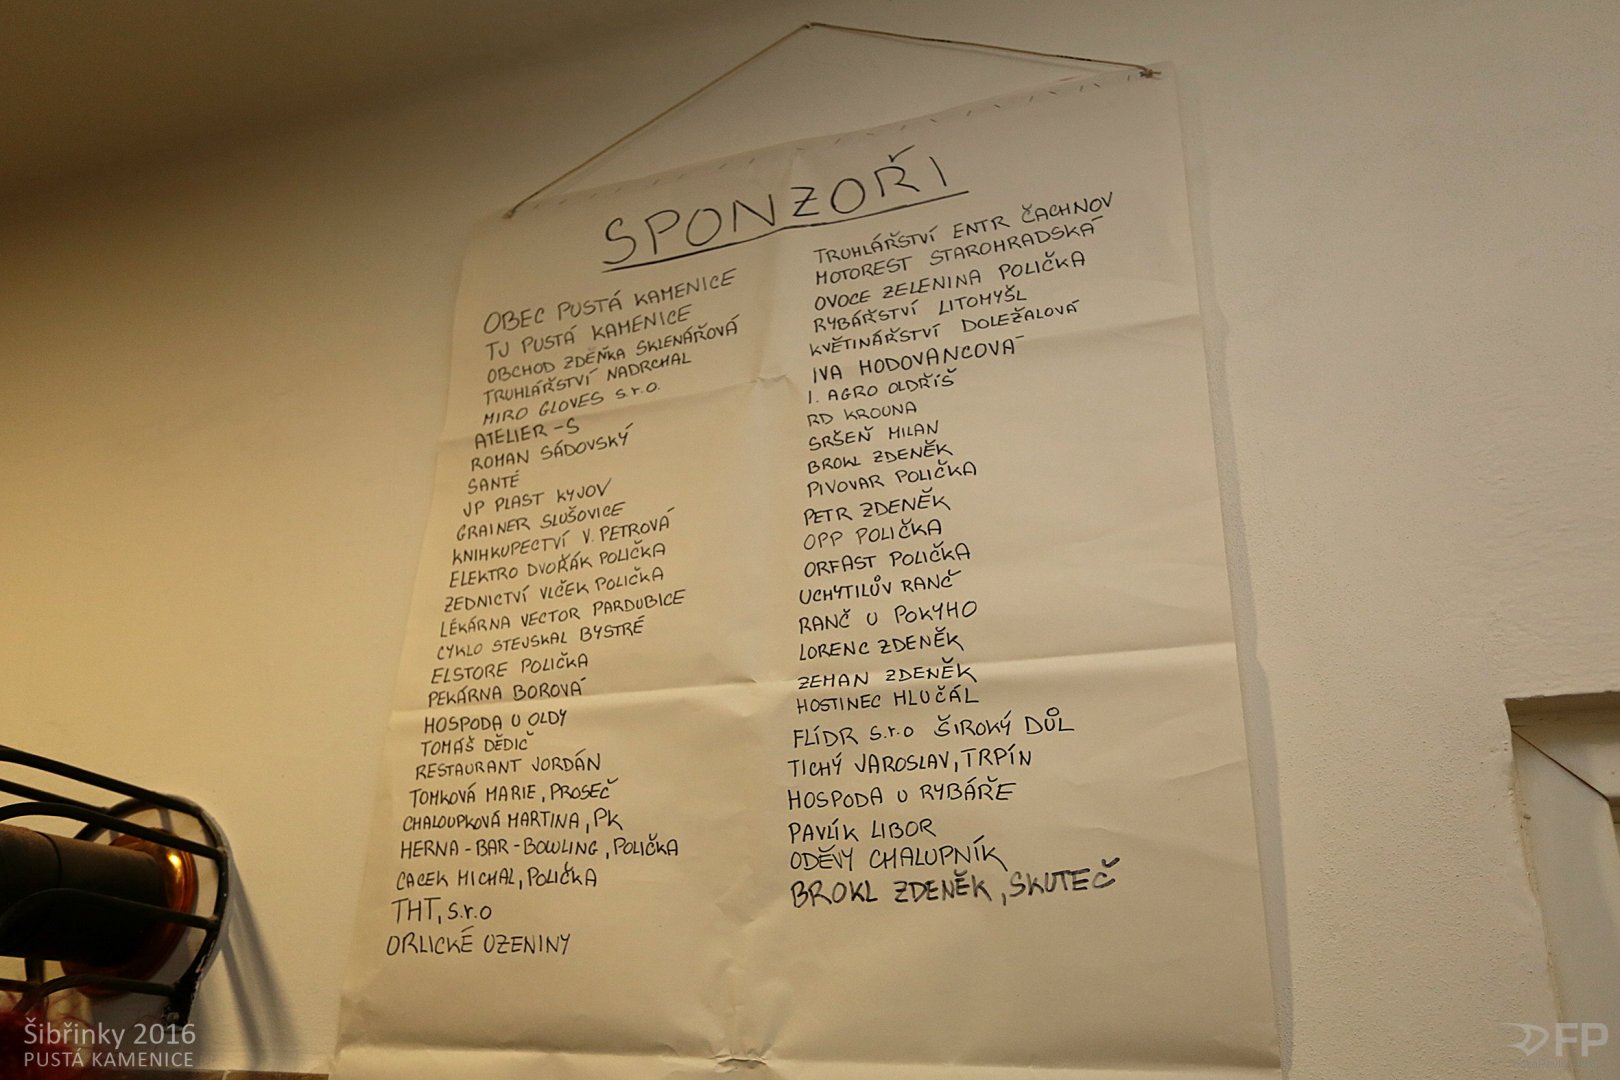 SPONZOŘI
OBEC PUSTÁ KAMENICE
TJ PUSTÁ KAMENICE
OBCHOD ZDĚŇKA SKLENÁŘOVÁ
TRUHLÁŘSTVÍ NADRCHAL
MIRO GLOVES s.r.o.
ATELIER-S
ROMAN SÁDOVSKÝ
SANTÉ
JP PLAST KYJOV
GRAINER SLUŠOVICE
KNIHKUPECTVÍ V. PETROVÁ
ELEKTRO DVOŘÁK POLIČKA
ZEDNICTVÍ VLČEK POLIČKA
LÉKÁRNA VECTOR PARDUBICE
CYKLO STEJSKAL BYSTRÉ
ELSTORE POLIČKA
PEKÁRNA BOROVÁ
HOSPODA U OLDY
TOMÁŠ DĚDIČ
RESTAURANT JORDÁN
TOMKOVÁ MARIE, PROSEČ
CHALOUPKOVÁ MARTINA, PK
HERNA-BAR-BOWLING, POLIČKA
CACEK MICHAL, POLIČKA
THT, s.r.o
ORLICKÉ UZENINY
TRUHLÁŘSTVÍ ENTR ČACHNOV
MOTOREST STAROHRADSKÁ
OVOCE ZELENINA POLIČKA
RYBÁŘSTVÍ LITOMYŠL
KVĚTINÁŘSTVÍ DOLEŽALOVÁ
IVA HODOVANCOVÁ
1. AGRO OLDŘÍŠ
RD KROUNA
SRŠEŇ MILAN
BROKL ZDENĚK
PIVOVAR POLIČKA
PETR ZDENĚK
OPP POLIČKA
ORFAST POLIČKA
UCHYTILŮV RANČ
RANČ U POKYHO
LORENC ZDENĚK
ZEMAN ZDENĚK
HOSTINEC HLUČÁL
FLÍDR s.r.o ŠIROKÝ DŮL
TICHÝ JAROSLAV, TRPÍN
HOSPODA U RYBÁŘE
PAVLÍK LIBOR
ODĚVY CHALUPNÍK
BROKL ZDENĚK, SKUTEČ
Šibřinky 2016
PUSTÁ KAMENICE
FP